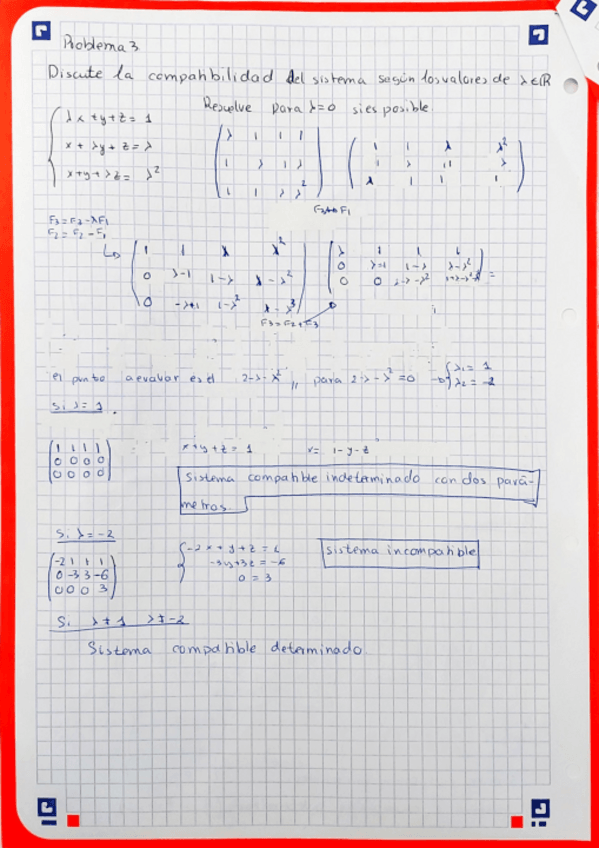 Problema 3
Discute la compatibilidad del sistema según los valores de λ∈ℝ
Resuelve para λ=0 si es posible
λx+y+z=1
x+λy+z=λ
x+y+λz=λ²
λ 1 1 1
1 λ 1 λ
1 1 λ λ²
1 1 λ λ²
1 λ 1 λ
λ 1 1 1
F3↔F1
F3=F3-λF1
F2=F2-F1
1 1 λ λ²
0 λ-1 1-λ λ-λ²
0 -λ+1 1-λ² λ-λ³
F3=F2+F3
λ 1 1 1
0 λ-1 1-λ λ-λ²
0 0 2-λ-λ²
=
el punto a evaluar es el 2-λ-λ² ,, para 2-λ-λ²=0 → λ₁= 1
λ₂= -2
Si λ=1.
1 1 1 1
0 0 0 0
0 0 0 0
x+y+z=1
x= 1-y-z
Sistema compatible indeterminado con dos pará-
metros.
Si λ=-2
-2 1 1 1
0 -3 3 -6
0 0 0 3
-2x+y+z=1
-3y+3z=-6
0=3
sistema incompatible
Si λ≠1 λ≠-2
Sistema compatible determinado